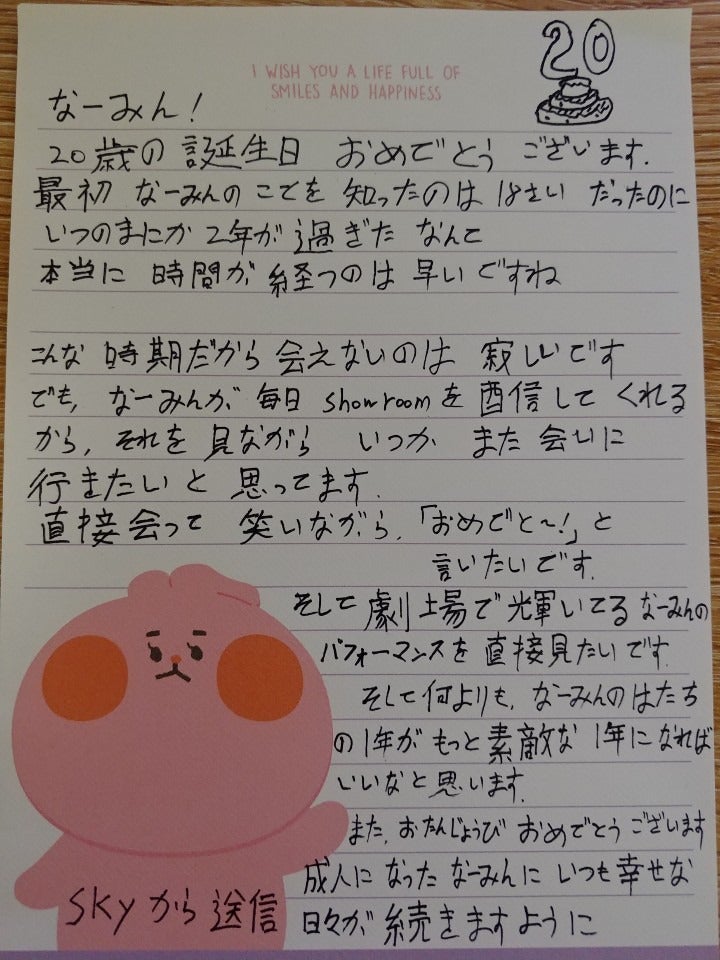 20
I WISH YOU A LIFE FULL OF
SMILES AND HAPPINESS
なーみん!
20歳の 誕生日 おめでとう ございます.
最初 なーみんの ことを 知ったのは 18さい だったのに
いつのまにか 2年が 過ぎた なんて
本当に 時間が 経つのは 早いですね
こんな 時期だから 会えないのは 寂しいです
でも, なーみんが 毎日 showroomを 配信して くれる
から, それを 見ながら いつか また 会いに
行きたいと 思ってます.
直接会って 笑いながら, 「おめでと〜!」と
言いたいです.
そして 劇場で 光輝いてる なーみんの
パフォーマンスを 直接見たいです.
そして何よりも, なーみんのはたち
の1年が もっと 素敵な 1年になれば
いいなと 思います.
また, おたんじょうび おめでとう ございます
成人に なった なーみんに いつも 幸せな
日々が 続きますように
SKyから 送信